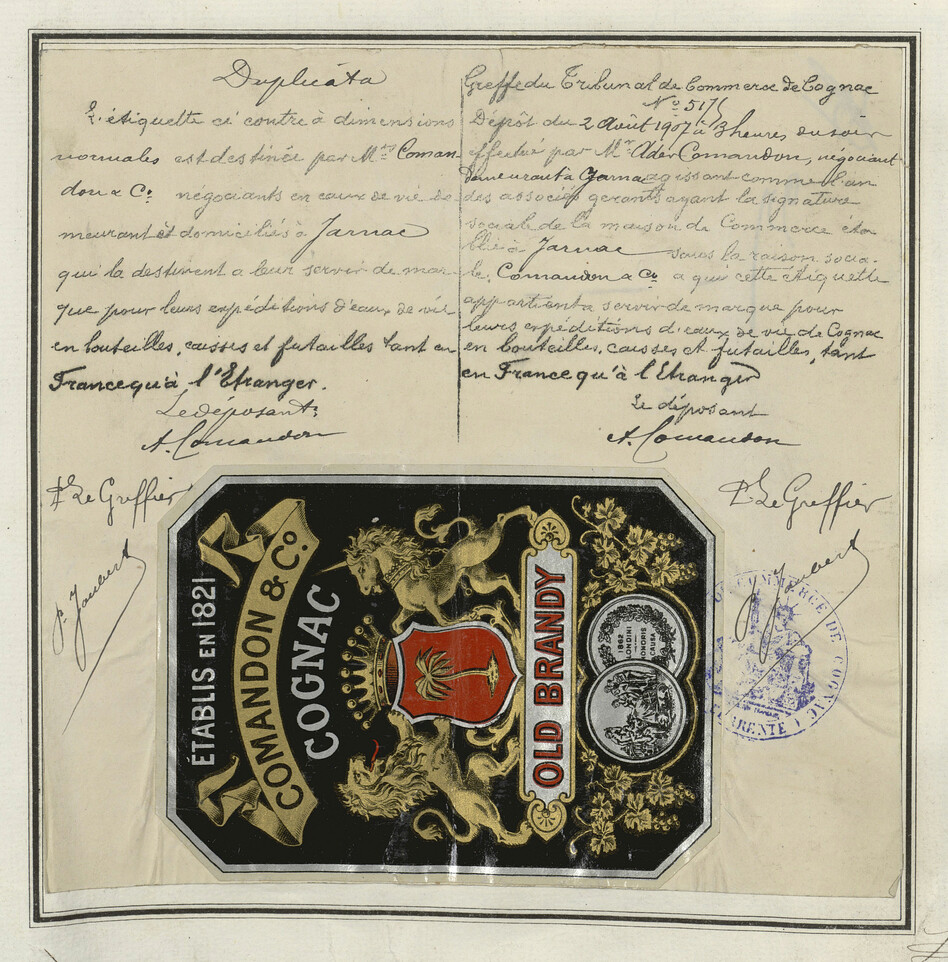 Duplicata
L'étiquette ci contre à dimensions
normales est destinée par Mrs Coman-
don & Co. négociants en eaux de vie de-
meurant et domiciliés à Jarnac
qui la destinent a leur servir de mar-
que pour leurs expéditions d'eaux de vie
en bouteilles, caisses et futailles tant en
France qu'à l'Etranger.
Le déposant:
A. Comandon
Pr Le Greffier
P. Joubert
Greffe du Tribunal de Commerce de Cognac
No 517
Dépôt du 2 Août 1907 à 3 heures du soir
effectué par Mr Adér Comandon, négociant
demeurant à Jarnac agissant comme l'un
des associés gerants ayant la signature
sociale de la maison de Commerce éta-
blie à Jarnac sous la raison socia-
le Comandon & Co a qui cette étiquette
appartient a servir de marque pour
leurs expéditions d'eaux de vie de Cognac
en bouteilles, caisses et futailles, tant
en France qu'à l'Etranger
Le déposant
A. Comandon
Pr Le Greffier
Joubert
ÉTABLIS EN 1821
COMANDON & Co.
COGNAC
OLD BRANDY
1862
LONDINI
HONORIS
CAUSA
COMMERCE DE COGNAC
CHARENTE